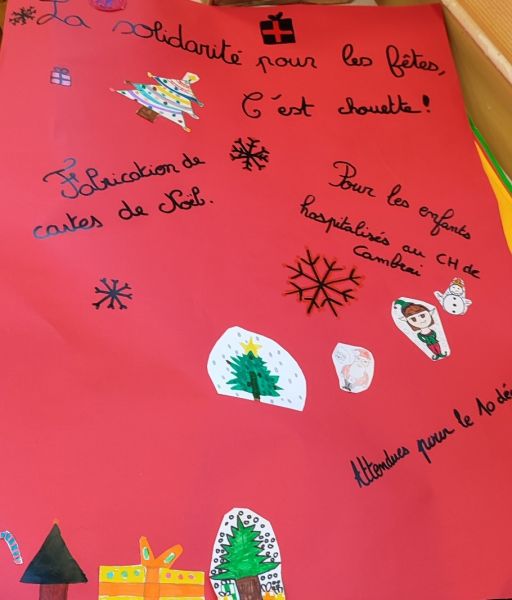 La solidarité pour les fêtes,
C'est chouette!
Fabrication de
cartes de Noël.
Pour les enfants
hospitalisés au CH de
Cambrai
Attendues pour le 10 déc